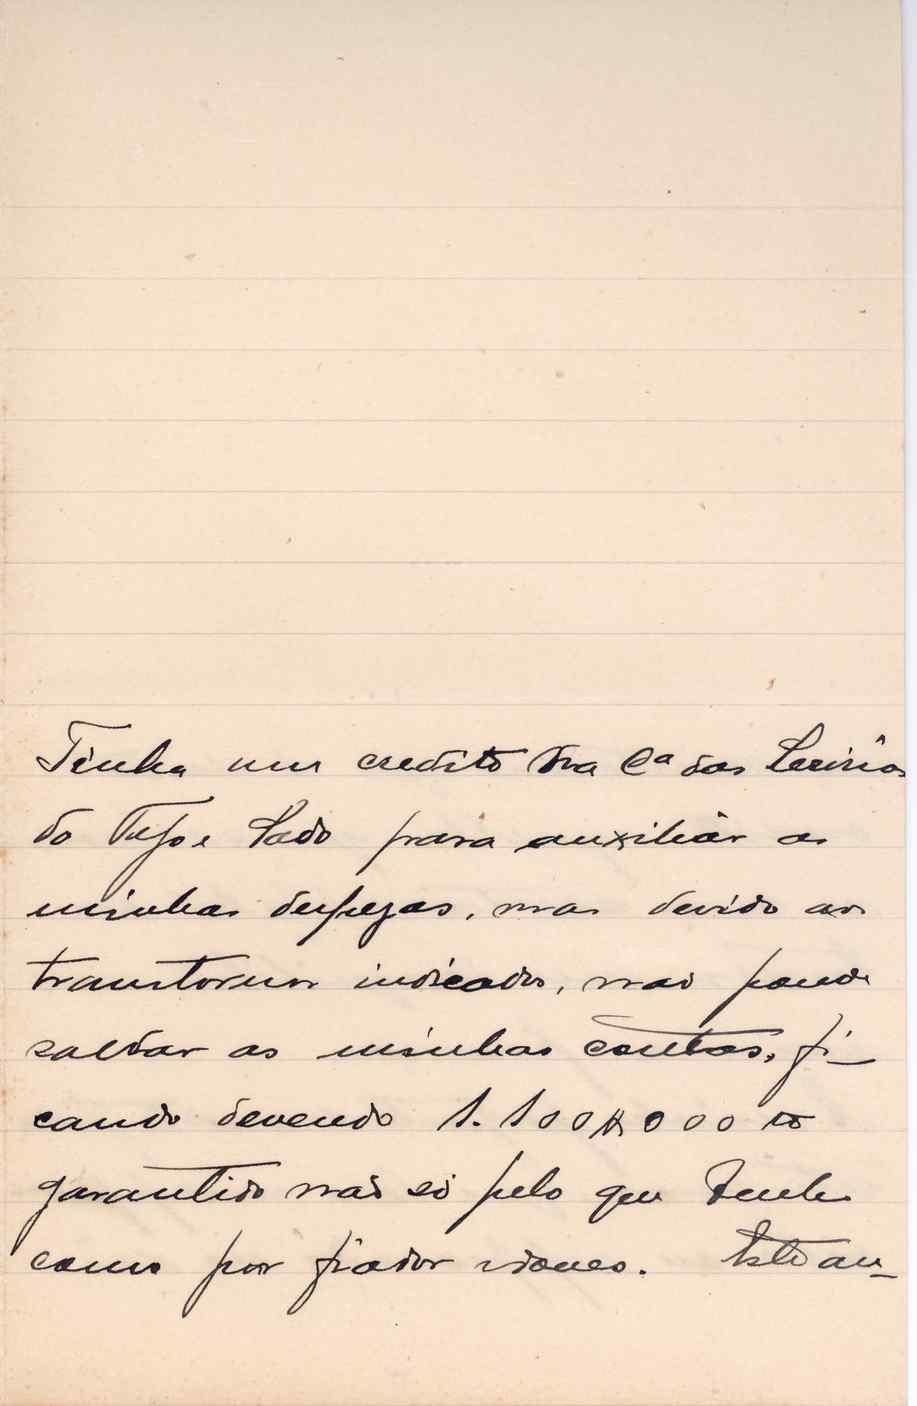 Tinha um credito na Cª das Lezirias
do Tejo e Sado para auxiliar as
minhas despezas, mas devido aos
transtornos indicados, não poude
saldar as minhas contas, fi-
cando devendo 1.100$000 rs
garantido não só pelo que tenho
como por fiador idoneo. Este an-